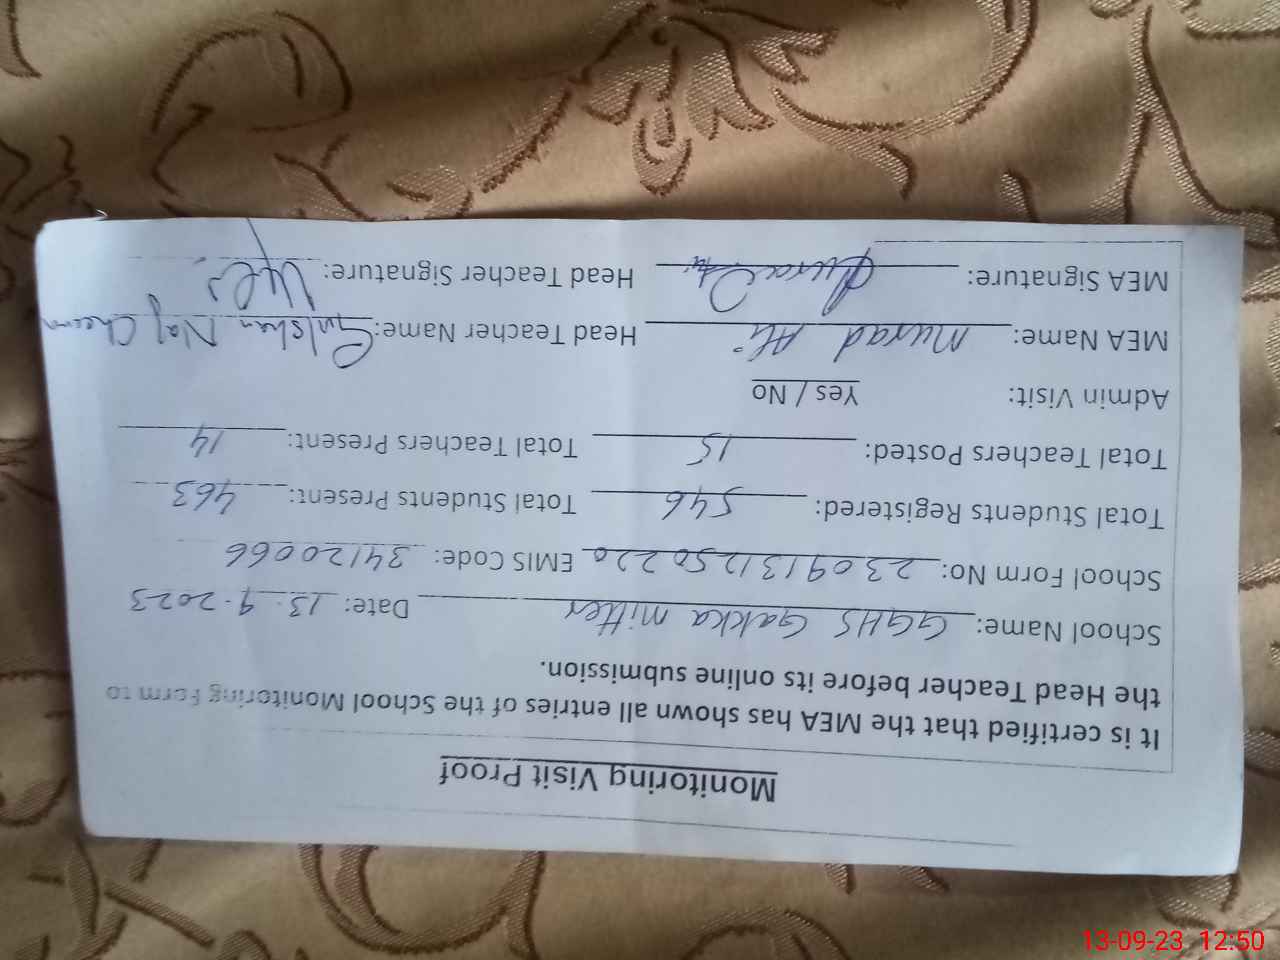 Monitoring Visit Proof
It is certified that the MEA has shown all entries of the School Monitoring Form to
the Head Teacher before its online submission.
School Name: GGHS Gakka mitter Date: 13.9.2023
School Form No: 23091311250220 EMIS Code: 34120066
Total Students Registered: 546 Total Students Present: 463
Total Teachers Posted: 15 Total Teachers Present: 14
Admin Visit: Yes / No
MEA Name: Murad Ali Head Teacher Name: Gulshan Naz Cheema
MEA Signature: Head Teacher Signature:
13-09-23 12:50